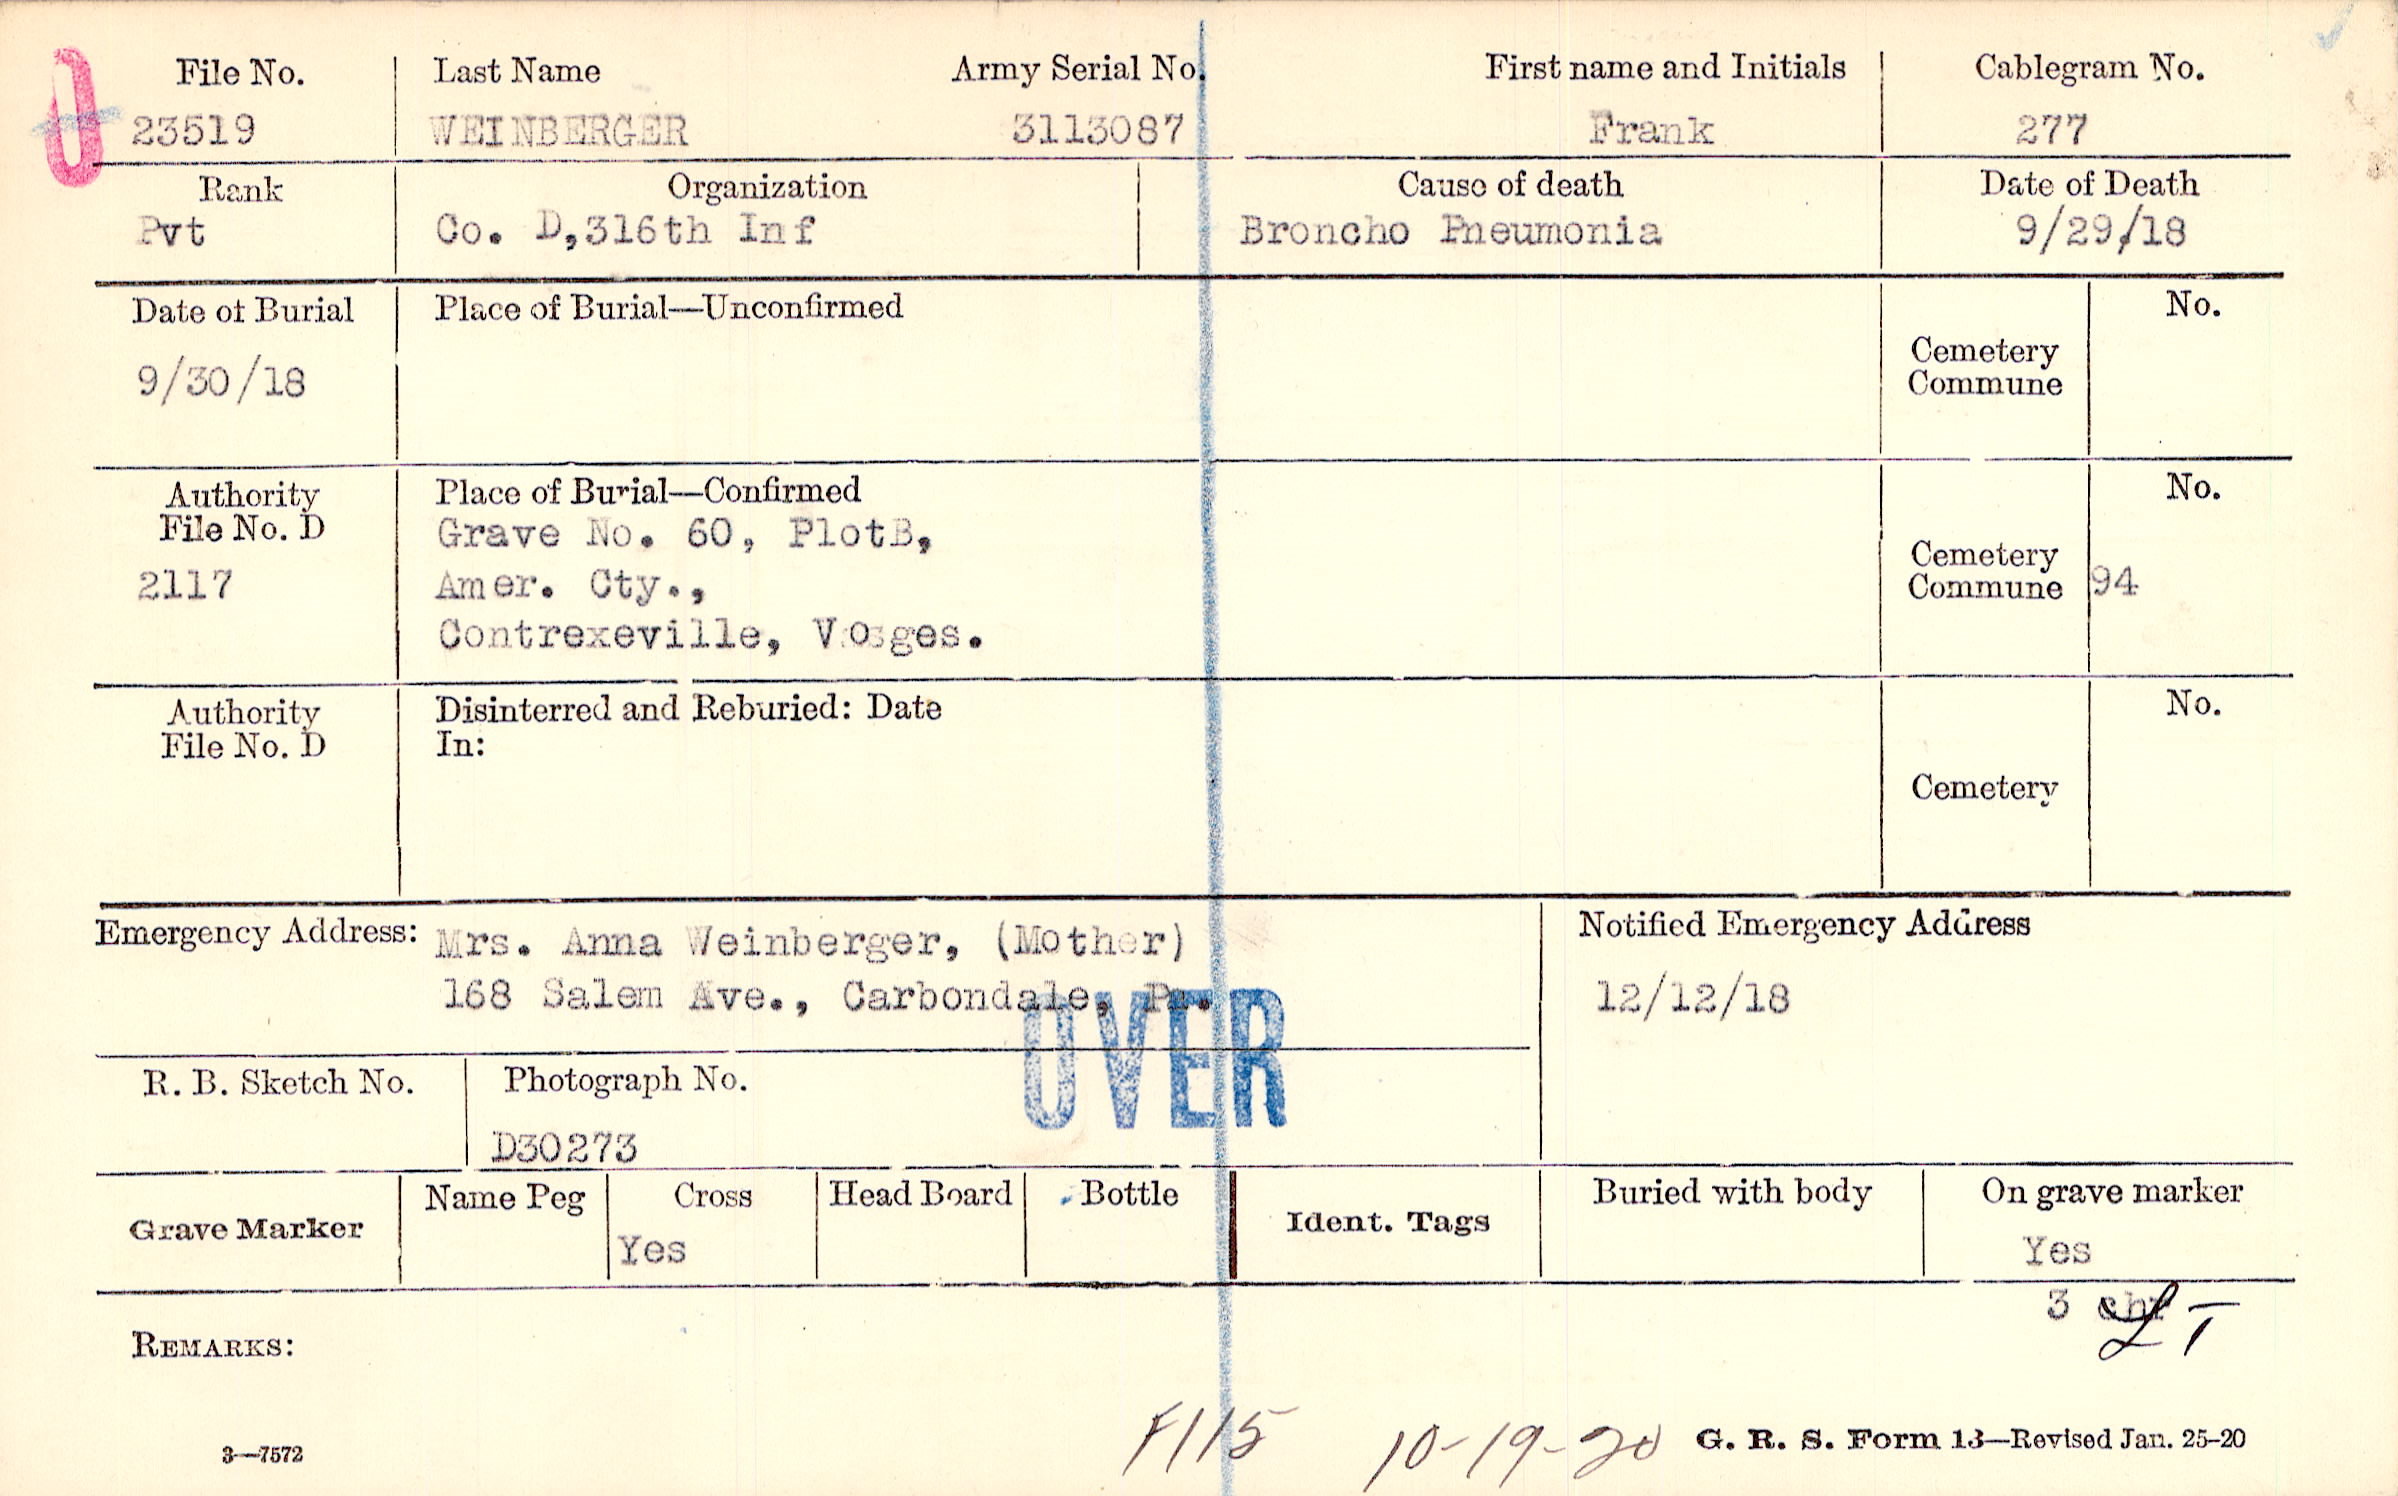 File No. Last Name Army Serial No. First name and Initials Cablegram No.
23519 WEINBERGER 3113087 Frank 277
Rank Organization Cause of death Date of Death
Pvt Co. D,316th Inf Broncho Pneumonia 9/29/18
Date of Burial Place of Burial—Unconfirmed No.
Cemetery
Commune
9/30/18
Authority Place of Burial—Confirmed No.
File No. D Grave No. 60, PlotB,
2117 Amer. Cty., Cemetery
Commune 94
Contrexeville, Vosges.
Authority Disinterred and Reburied: Date No.
File No. D In:
Cemetery
Emergency Address: Mrs. Anna Weinberger, (Mother) Notified Emergency Address
168 Salem Ave., Carbondale, Pa. 12/12/18
OVER
R. B. Sketch No. Photograph No.
D30273
Grave Marker Name Peg Cross Head Board Bottle Ident. Tags Buried with body On grave marker
Yes Yes
3
LT
REMARKS:
F115 10-19-20
3—7572 G. R. S. Form 13—Revised Jan. 25-20